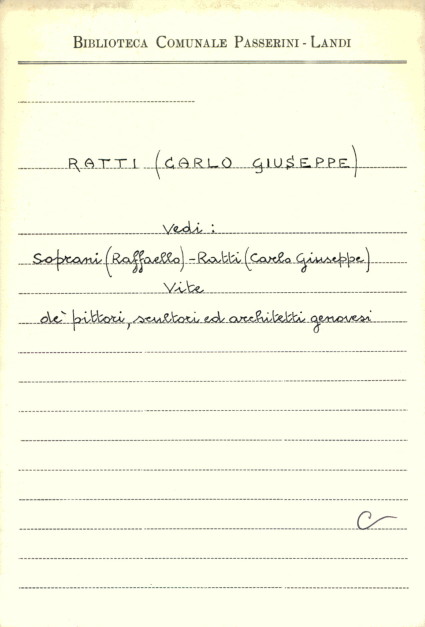 BIBLIOTECA COMUNALE PASSERINI - LANDI
RATTI (CARLO GIUSEPPE)
Vedi :
Soprani (Raffaello) - Ratti (Carlo Giuseppe)
Vite
de' pittori, scultori ed architetti genovesi
C